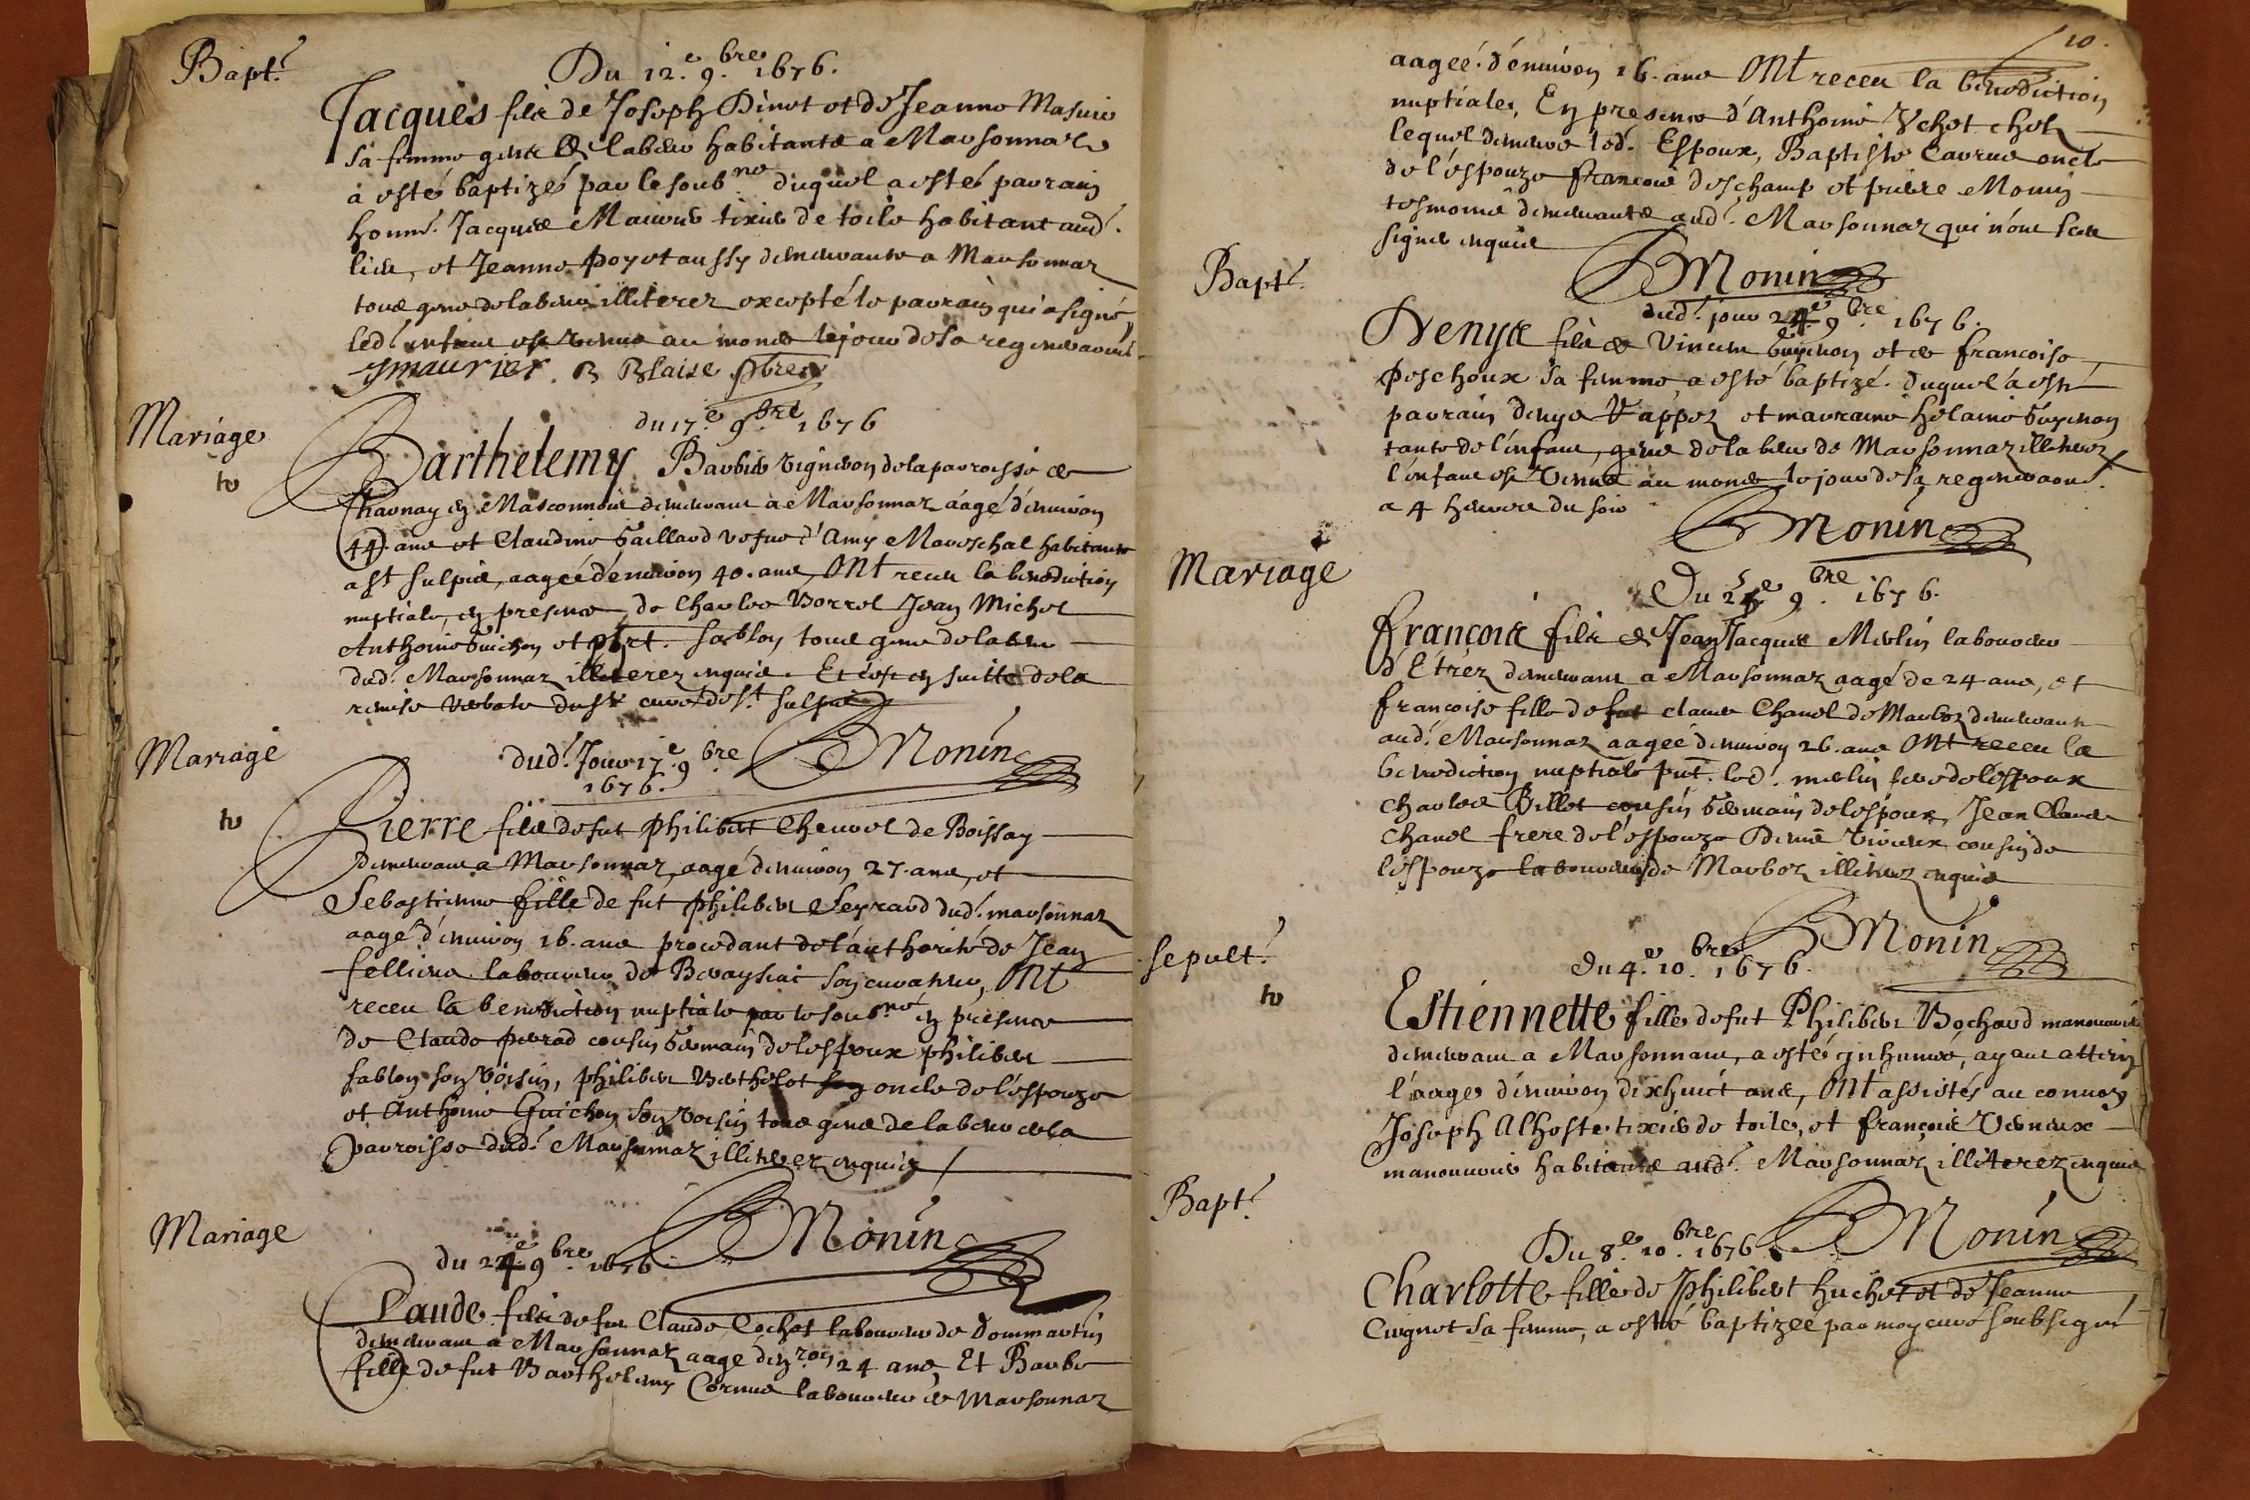 Bapt.
Du 12.e 9.bre 1676.
Jacques filz de Joseph Dinot et de Jeanne
sa femme gens de labeur habitants a Marsonnaz
a estés baptizés par le soub.né duquel a estés parrain
honn. Jacques tixier de toile habitant aud.
lieu, et Jeanne Poyet aussy demeurante a Marsonnaz
tous gens de labeur illiterez excepté le parrain qui a signé
led. enfant est venus au monde le jour de sa
Jmaurier. B Blaise pbre
Mariage
du 17.e 9.bre 1676
Barthelemy Barbier vigneron de la parroisse de
Charnay en Masconnois demeurant a Marsonnaz aagé d'environ
44. ans et Claudine Gaillard vefue d'Amy Mareschal habitante
a St Sulpis, aagéé d'environ 40. ans, Ont receu la benediction
nuptiale, en presence de Charles Borrel Jean Michel
Anthoine Guichon et Sablon, tous gens de labeur
dud. Marsonnaz illiterez enquis. Et c'est en suitte de la
remise verbale du Sr curé de St Sulpis
BMonin
Mariage
dud. Jour 17.e 9.bre
1676.
Pierre filz de fut Philibert Chevrel de Boissay
demeurant a Marsonnaz, aagé d'environ 27. ans, et
Sebastienne fille de fut Philibert Seyraud dud. Marsonnaz
aagé d'environ 16. ans procedant de l'authorité de Jean
laboureur de son curateur, Ont
receu la benediction nuptiale par le soub.né en presence
de Claude Perrad cousin Germain de l'espoux Philibert
Sablon son voisin, Philibert Berthelot oncle de l'espouze
et Anthoine Guichon son voisin tous gens de labeur de la
parroisse dud. Marsonnaz illiterez enquis
BMonin
Mariage
du 24.e 9.bre 1676
Claude filz de fut Claude Cochet laboureur de Dommartin
demeurant a Marsonnaz aagé d'en.ron 24 ans, Et Barbe
fille de fut Barthelemy Cornus laboureur de Marsonnaz
10.
aagéé. d'environ 16. ans Ont receu la benediction
nuptiale, En presence d'Anthoine Vchet chez
lequel demeure led. Espoux, Baptiste oncle
de l'espouze Francois deschamp et pierre Monin
tesmoins demeurants aud. Marsonnaz qui n'ont sceu
signer enquis
BMonin
Bapt.
dud. jour 24.e 9.bre 1676.
Denys filz de Vincent Guychon et de Francoise
Poschoux sa femme a esté baptizé. duquel a esté
parrain denys et marraine helaine Guychon
tante de l'enfant, gens de labeur de Marsonnaz illiterez
l'enfant est venus au monde le jour de sa
a 4 heures du soir
BMonin
Mariage
Du 25.e 9.bre 1676.
François filz de Jean Jacques Merlin laboureur
d'Etrez demeurant a Marsonnaz aagé de 24 ans, et
Françoise fille de fut claude Chanel de Marboz demeurant
aud. Marsonnaz aagee d'environ 26. ans Ont receu la
benediction nuptiale pnt. led. merlin pere de l'espoux
Charles Billet cousin Germain de l'espoux, Jean Claude
Chanel frere de l'espouze Denis cousin de
l'espouze laboureurs de Marboz illiterez enquis
BMonin
Sepult.
du 4.e 10.bre 1676.
Estiennette fille de fut Philibert Bochard manouvrier
demeurant a Marsonnaz, a estés inhumée, ayant atteint
l'aage d'environ dixhuict ans, Ont assistés au convoy
Joseph Alhoste tixier de toile, et françois
manouvrier habitants aud. Marsonnaz illiterez enquis
BMonin
Bapt.
Du 8.e 10.bre 1676.
Charlotte fille de Philibert huchet et de Jeanne
Cugnet sa femme, a esté baptizéé par moy curé soubsigné